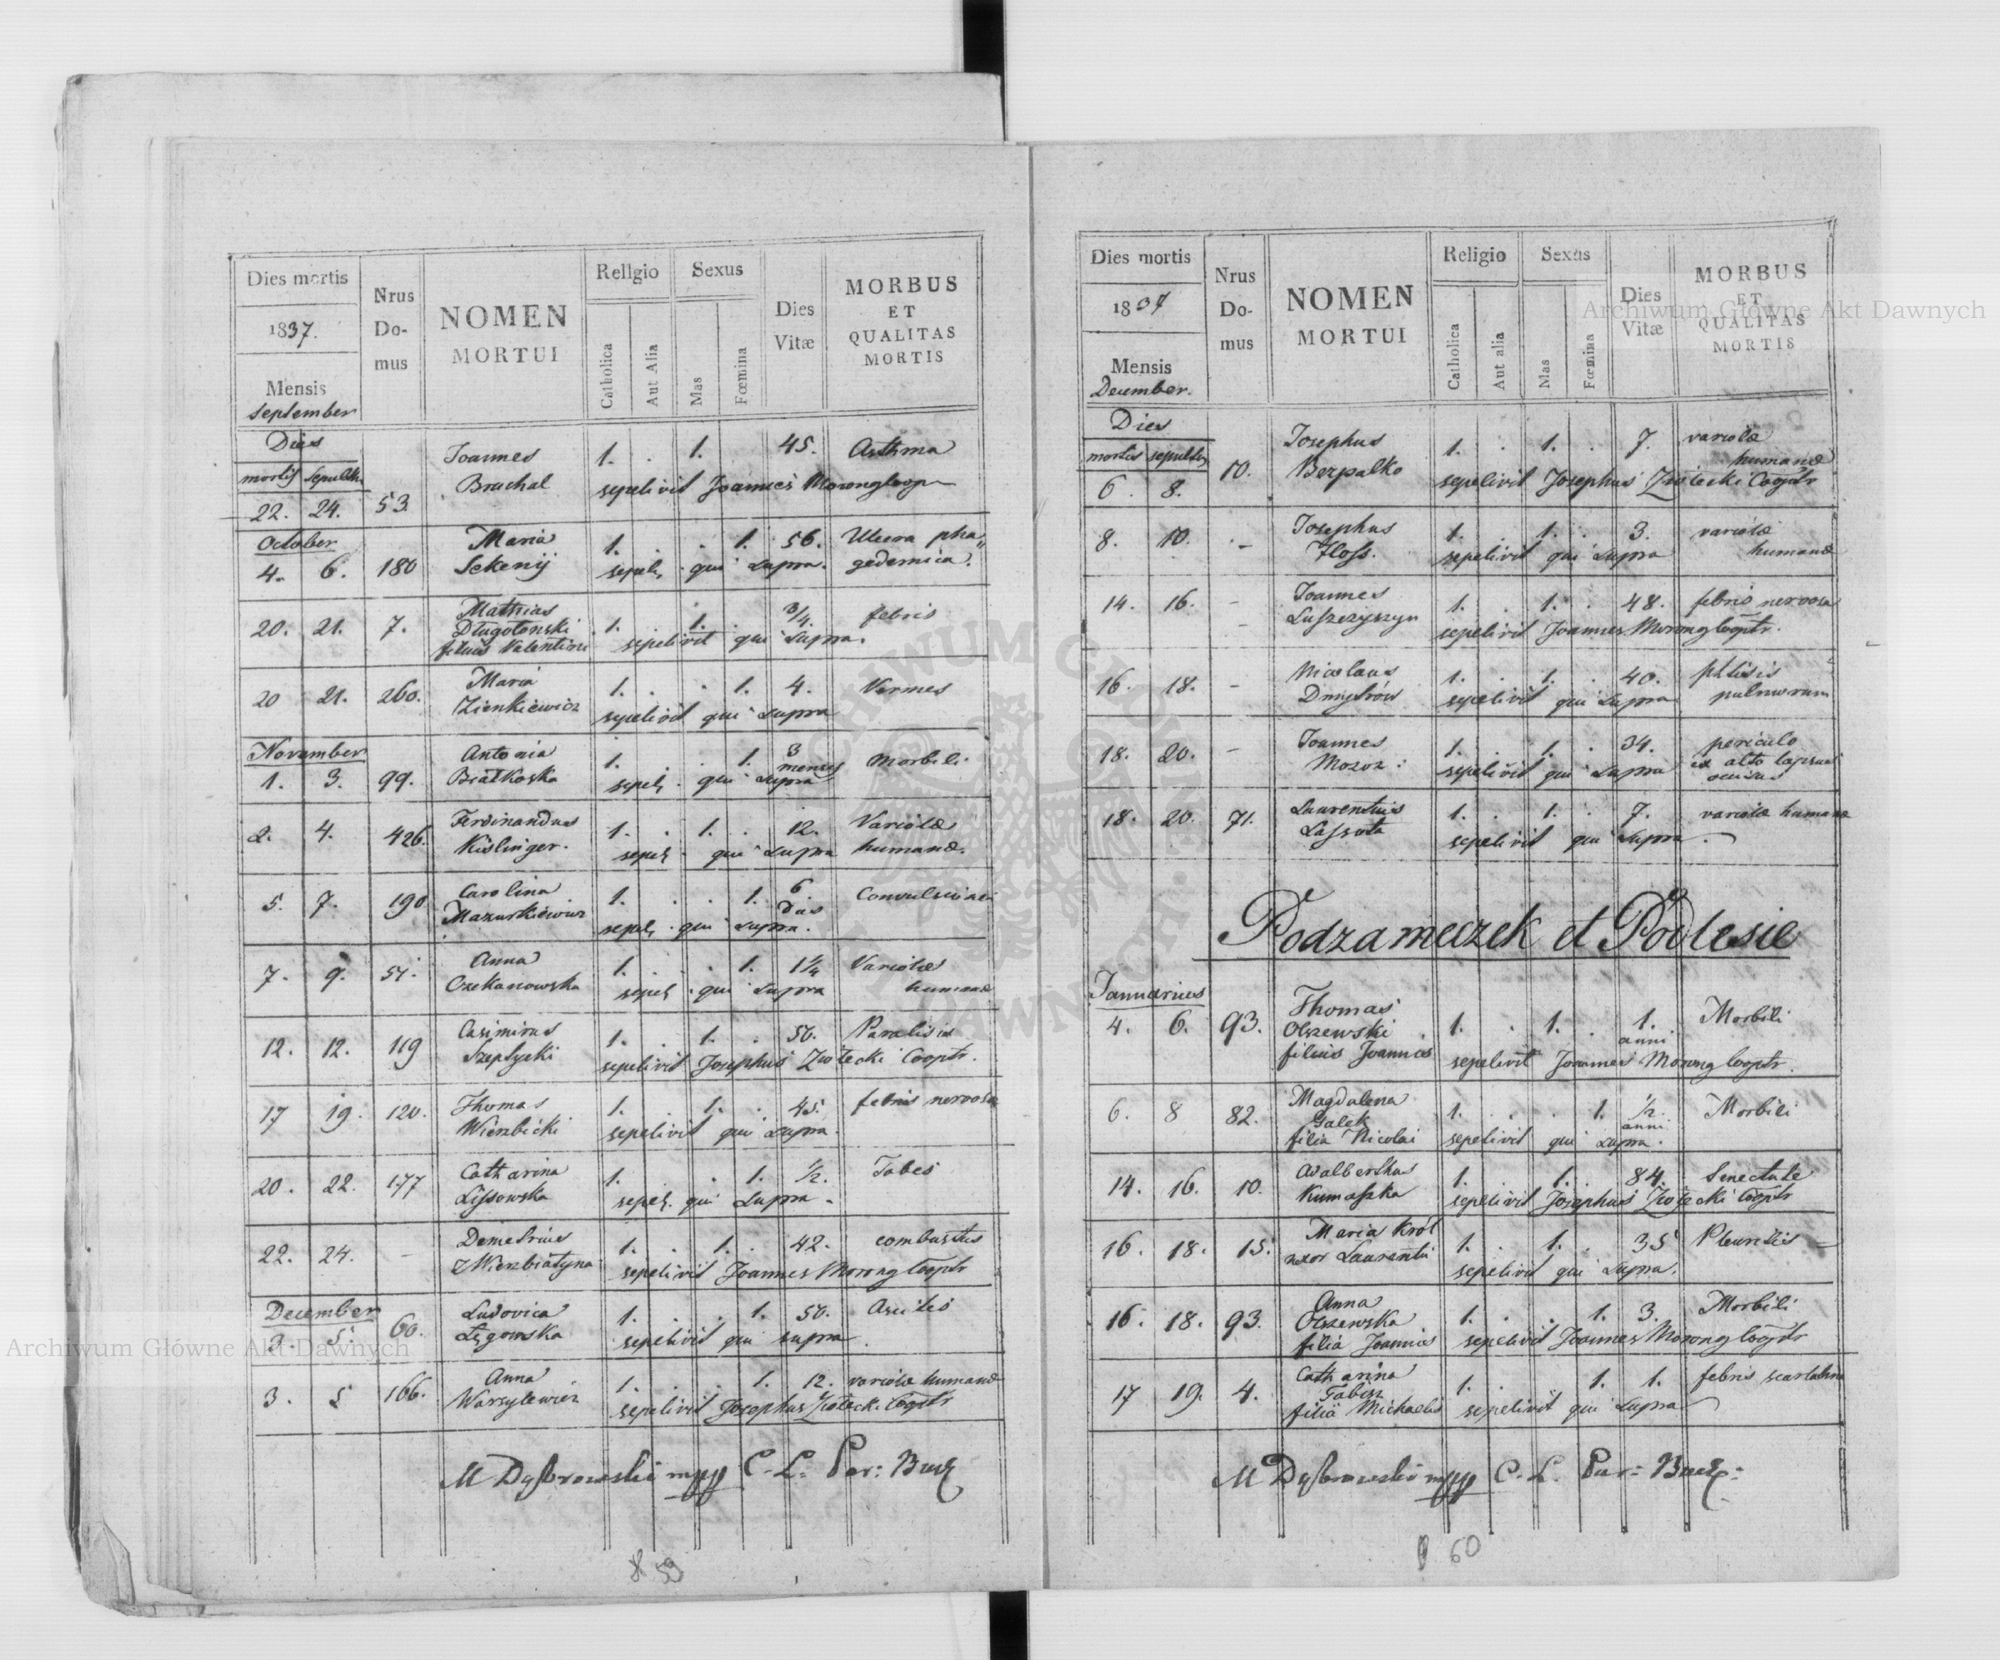 Dies mortis
1837.
Mensis
September
Nrus
Do-
mus
NOMEN
MORTUI
Religio
Catholica
Aut Alia
Sexus
Mas
Fœmina
Dies
Vitæ
MORBUS
ET
QUALITAS
MORTIS
Dies
mortis sepult.
22. 24. 53
Joannes
Bruchal
1. . 1. 45. Asthma
sepelivit Joannes Morong Coop
October
4. 6. 180
Maria
Sekenij
1. . . 1. 56. Ulcera pha„
sepel. qui supra. gedemica.
20. 21. 7.
Mathias
Długotonski
filius Valentini
1. . 1. . 3/4. febris
sepelivit qui supra.
20 21. 260.
Maria
Zienkiewicz
1. . . 1. 4. Vermes
sepelivit qui supra
November
1. 3. 99.
Antonia
Bratkoska
1. . . 1. 3 menses Morbili
sepel. qui supra
2. 4. 426.
Ferdinandus
Kislinger.
1. . 1. . 12. Variolæ
sepel. qui supra humanæ.
5. 7. 190
Carolina
Mazurkiewicz
1. . . 1. 6 dies Convulsiones
sepel. qui supra.
7. 9. 51.
Anna
Czekanowska
1. . . 1. 1 1/4 Variolæ
sepel. qui supra humanæ
12. 12. 119
Casimirus
Szeptycki
1. . 1. . 50. Paralisis
sepelivit Josephus Ziołecki Cooptr.
17 19. 120.
Thomas
Wierzbicki
1. . 1. . 45. febris nervosa
sepelivit qui supra.
20. 22. 177
Catharina
Lissowska
1. . . 1. 1/2. Tabes
sepel. qui supra.
22. 24. -
Demetrius
Wierzbiatyna
1. . 1. . 42. combustus
sepelivit Joannes Morong Cooptr
December
3. 5. 60.
Ludovica
Łęgowska
1. . . 1. 50. Ascites
sepelivit qui supra
3. 5 166.
Anna
Warsylewicz
1. . . 1. 12. variolæ humanæ
sepelivit Josephus Ziołecki Cooptr
M Dąbrowski mpp C. L. Par: Bucz
59
Dies mortis
1837
Mensis
December.
Nrus
Do-
mus
NOMEN
MORTUI
Religio
Catholica
Aut alia
Sexus
Mas
Fœmina
Dies
Vitæ
MORBUS
ET
QUALITAS
MORTIS
Dies
mortis sepultus
6. 8. 10.
Josephus
Bezpalko
1. . 1. . 7. variolæ
humanæ
sepelivit Josephus Ziołecki Cooptr
8. 10. -
Josephus
Hoss.
1. . 1. . 3. variolæ
sepelivit qui supra humanæ
14. 16. -
Joannes
Luszczyszyn
1. . 1. . 48. febris nervosa
sepelivit Joannes Morong Cooptr.
16. 18. -
Nicolaus
Dmytrów
1. . 1. . 40. phtisis
sepelivit qui supra pulmorum
18. 20. -
Joannes
Mozoz
1. . 1. . 34. periculo
sepelivit qui supra ex alto lapsus
occisus
18. 20. 71.
Laurentius
Lassota
1. . 1. . 7. variolæ humanæ
sepelivit qui supra
Podzameczek et Podlesie
Januarius
4. 6. 93.
Thomas
Olszewski
filius Joannis
1. . 1. . 1. anni Morbili
sepelivit Joannes Morong Cooptr.
6. 8 82.
Magdalena
Galek
filia Nicolai
1. . . 1. 1/2. anni Morbili
sepelivit qui supra.
14. 16. 10.
Adalbertus
Kumaszka
1. . 1. . 84. Senectute
sepelivit Josephus Ziołecki Cooptr
16. 18. 15.
Maria Król
uxor Laurentii
1. . 1. . 35 Pleuritis
sepelivit qui supra.
16. 18. 93.
Anna
Olszewska
filia Joannis
1. . . 1. 3. Morbili
sepelivit Joannes Morong Cooptr
17 19. 4.
Catharina
Tabisz
filia Michaelis
1. . . 1. 1. febris scarlatina
sepelivit qui supra
M Dąbrowski mpp C. L. Par: Bucz:
60
Archiwum Główne Akt Dawnych
Archiwum Główne Akt Dawnych
ARCHIWUM GŁÓWNE AKT DAWNYCH